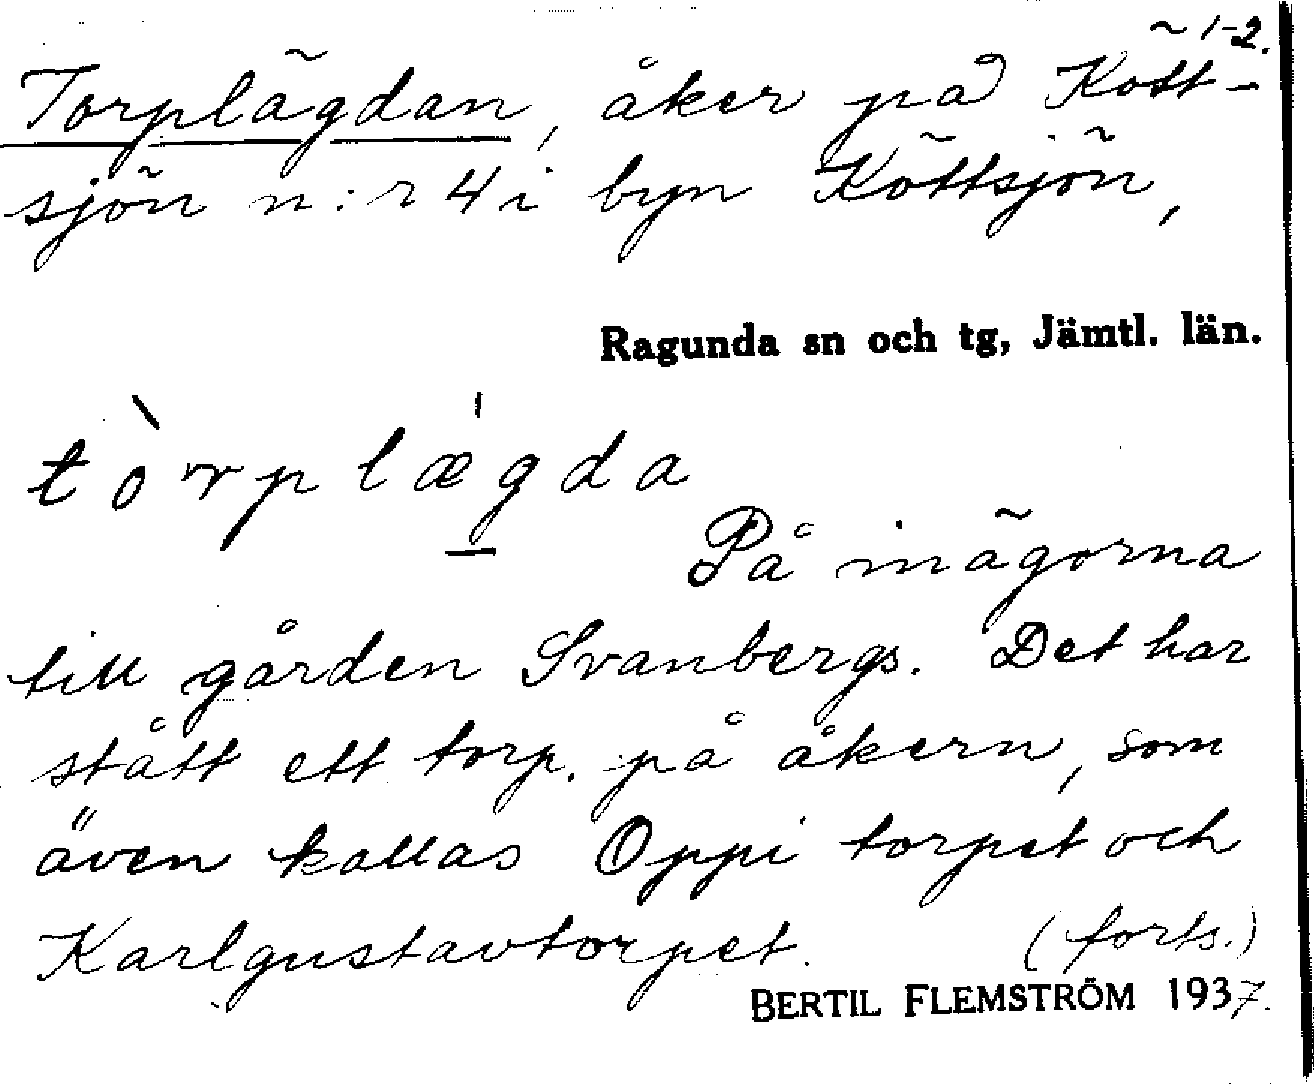 ~ 1-2.
Torplägdan, åker på Kött-
sjön n:r 4 i byn Köttsjön,
Ragunda sn och tg, Jämtl. län.
tòrplægda
På inägorna
till gården Svanbergs. Det har
stått ett torp. på åkern, som
även kallas Oppi torpet och
Karlgustavtorpet. (forts.)
BERTIL FLEMSTRÖM 1937.